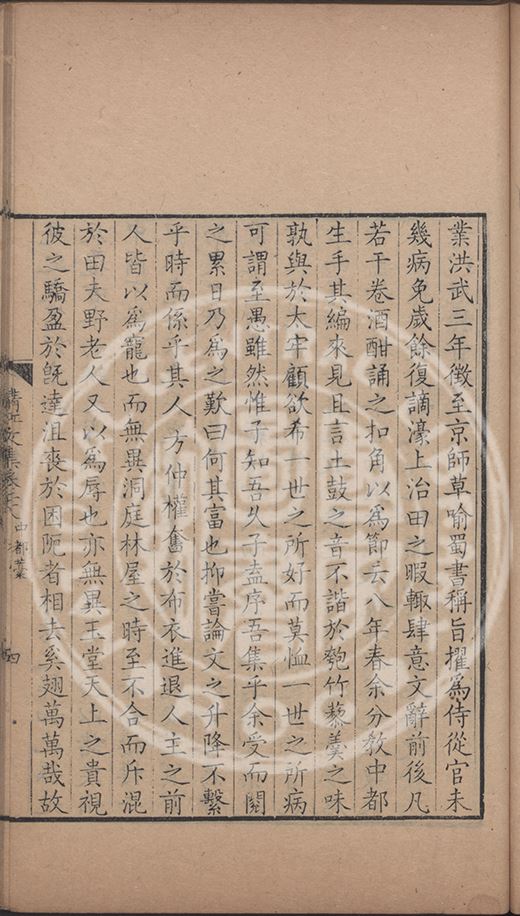 業洪武三年徵至京師草喻蜀書稱旨擢為侍從官未
幾病免歲餘復謫濠上治田之暇輙肆意文辭前後凡
若干卷酒酣誦之扣角以為節云八年春余分教中都
生手其編來見且言土鼓之音不諧於匏竹藜羮之味
孰與於太牢顧欲希一世之所好而莫恤一世之所病
可謂至愚雖然惟子知吾乆子盍序吾集乎余受而閱
之累日乃為之歎曰何其富也抑嘗論文之升降不繫
乎時而係乎其人方仲權奮於布衣進退人主之前
人皆以為寵也而無異洞庭林屋之時至不合而斥混
於田夫野老人又以為辱也亦無異玉堂天上之貴視
彼之驕盈於旣達沮喪於困阨者相去奚翅萬萬哉故
文集卷六
中都藁
四